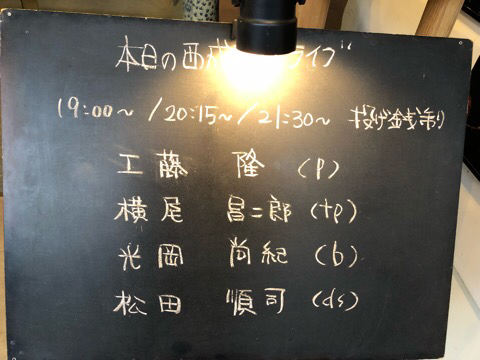 本日の西成 ライブ
19:00～/20:15～/21:30～ 投げ銭制り
工藤 隆 (p)
横尾 昌二郎 (tp)
光岡 尚紀 (b)
松田 順司 (ds)